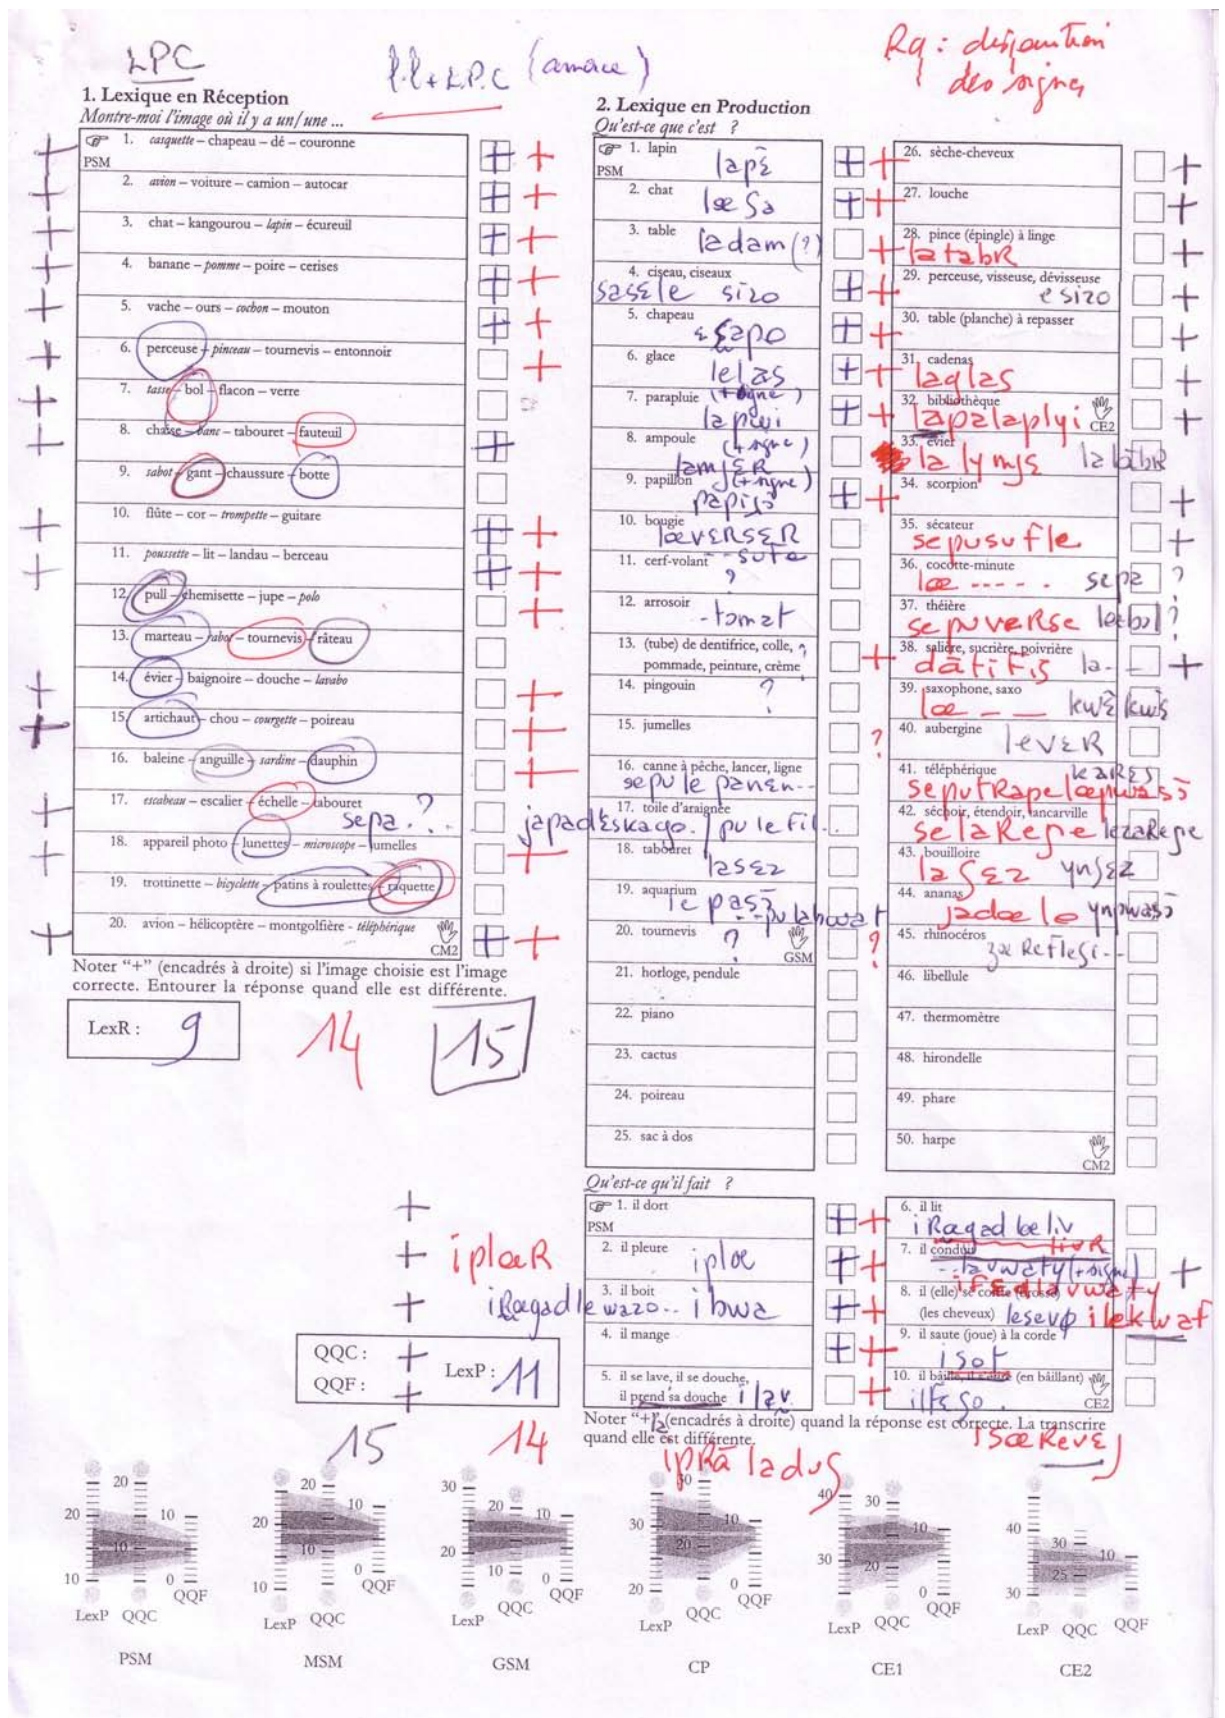 LPC
l.l + L.P.C (amorce)
Rq : disparition
des signes
1. Lexique en Réception
Montre-moi l'image où il y a un/une ...
1. casquette – chapeau – dé – couronne
PSM
2. avion – voiture – camion – autocar
3. chat – kangourou – lapin – écureuil
4. banane – pomme – poire – cerises
5. vache – ours – cochon – mouton
6. perceuse – pinceau – tournevis – entonnoir
7. tasse – bol – flacon – verre
8. chaise – banc – tabouret – fauteuil
9. sabot – gant – chaussure – botte
10. flûte – cor – trompette – guitare
11. poussette – lit – landau – berceau
12. pull – chemisette – jupe – polo
13. marteau – rabot – tournevis – râteau
14. évier – baignoire – douche – lavabo
15. artichaut – chou – courgette – poireau
16. baleine – anguille – sardine – dauphin
17. escabeau – escalier – échelle – tabouret
18. appareil photo – lunettes – microscope – jumelles
19. trottinette – bicyclette – patins à roulettes – raquette
20. avion – hélicoptère – montgolfière - téléphérique
CM2
Noter “+” (encadrés à droite) si l'image choisie est l'image
correcte. Entourer la réponse quand elle est différente.
LexR : 9 14 15
2. Lexique en Production
Qu'est-ce que c'est ?
1. lapin lapɛ̃
PSM
2. chat lœ ʃa
3. table ladam (?)
4. ciseau, ciseaux
sasɛle sizo
5. chapeau
ɛ ʃapo
6. glace
lelas
7. parapluie (+ signe)
8. ampoule (+ signe)
9. papillon (+ signe)
10. bougie
lœvɛRsɛR
11. cerf-volant
?
12. arrosoir
- tomat
13. (tube) de dentifrice, colle, ?
pommade, peinture, crème
14. pingouin ?
15. jumelles
16. canne à pêche, lancer, ligne
sepu le panɛn--
17. toile d'araignée
pu le fil..
18. tabouret
lasɛz
19. aquarium
20. tournevis ?
GSM
21. horloge, pendule
22. piano
23. cactus
24. poireau
25. sac à dos
26. sèche-cheveux
27. louche
28. pince (épingle) à linge
latabR
29. perceuse, visseuse, dévisseuse
e sizo
30. table (planche) à repasser
31. cadenas
laglas
32. bibliothèque
CE2
lapalaplyi
33. évier
la lymjɛ
34. scorpion
35. sécateur
sepusufle
36. cocotte-minute
lœ ----- sepa ?
37. théière
sepuvɛRse ?
38. salière, sucrière, poivrière
dɑ̃tifis la--
39. saxophone, saxo
lœ _ _
40. aubergine
levɛR
41. téléphérique
42. séchoir, étendoir, tancarville
selaReɲe
43. bouilloire
laʃɛz ynʃɛz
44. ananas
45. rhinocéros
46. libellule
47. thermomètre
48. hirondelle
49. phare
50. harpe
CM2
Qu'est-ce qu'il fait ?
1. il dort
PSM
2. il pleure iplœ
iplœR
3. il boit
ibwa
4. il mange
5. il se lave, il se douche,
il prend sa douche ilav
6. il lit
iRœgad le liv
livR
7. il conduit
-- lavwaty (+signe)
8. il (elle) se coiffe (brosse)
(les cheveux) lesevø ilekwaf
9. il saute (joue) à la corde
isot
10. il bâille, il s'étire (en bâillant)
CE2
QQC :
QQF :
LexP : 11
15 14
Noter “+” (encadrés à droite) quand la réponse est correcte. La transcrire
quand elle est différente.
ipRɑ̃ laduʃ
isœRevɛj
20 20 10 10 10 0
LexP QQC QQF
PSM
20 20 10 10 10 0
LexP QQC QQF
MSM
30 20 20 10 10 0
LexP QQC QQF
GSM
30 30 20 20 10 0
LexP QQC QQF
CP
40 30 30 20 10 0
LexP QQC QQF
CE1
40 30 30 25 10
LexP QQC QQF
CE2